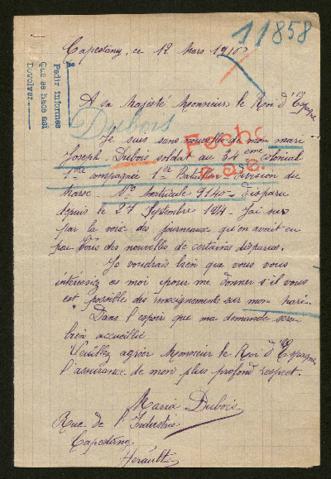 11858
Capestang, ce 12 Mars 1916
Pedir informes
Que se hace así
Devolver
A sa Majesté Monsieur le Roi d'Espagne
Dubois
Je suis sans nouvelle de mon mari
Joseph Dubois soldat au 24 eme Colonial
1ere compagnie 1er Bataillon Division du
Maroc. Nº Matricule 9140 disparu
depuis le 27 Septembre 1914. J'ai su
par la voie des journeaux qu'on avait eu
par vous des nouvelles de certains disparus.
Je voudrais bien que vous vous
interessiez as moi pour me donner s'il vous
est possible des renseignements sur mon mari.
Dans l'espoir que ma demande sera
bien accueillie
Veuillez agréer Monsieur le Roi d'Espagne
l'assurance de mon plus profond respect.
Maria Dubois
Rue de l'Industrie
Capestang
Herault